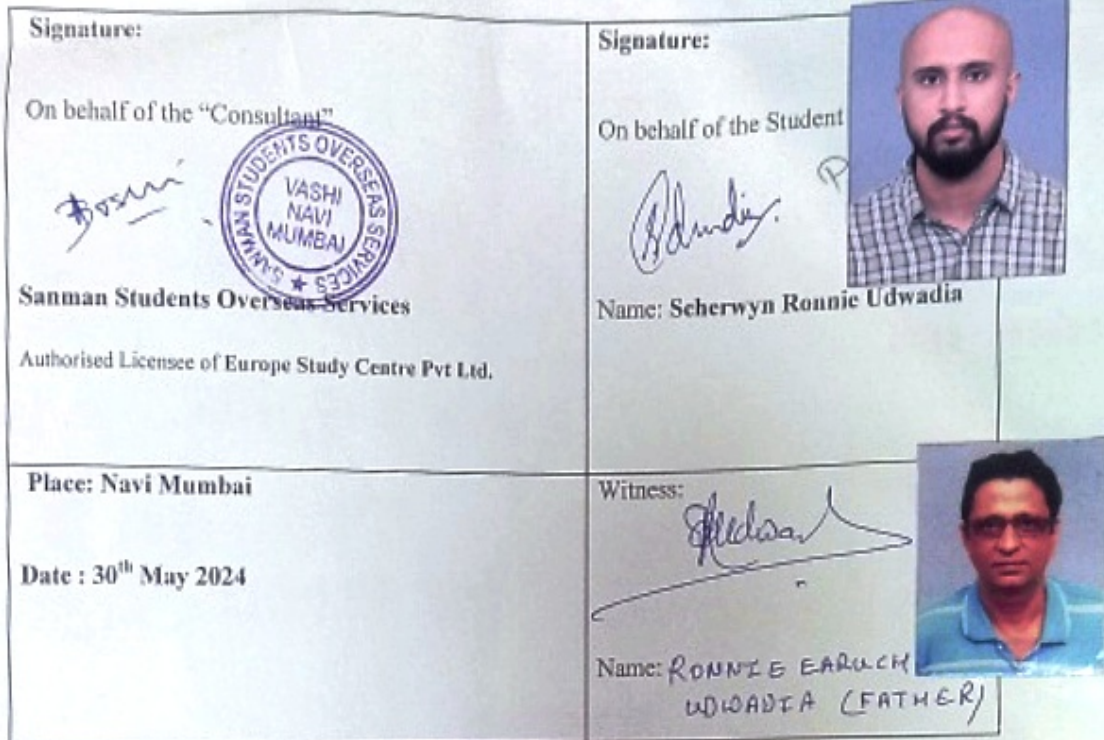 Signature:
On behalf of the "Consultant"
SANMAN STUDENTS OVERSEAS SERVICES ★
VASHI
NAVI
MUMBAI
Sanman Students Overseas Services
Authorised Licensee of Europe Study Centre Pvt Ltd.
Signature:
On behalf of the Student
Name: Scherwyn Ronnie Udwadia
Place: Navi Mumbai
Date : 30th May 2024
Witness:
Name: RONNIE EARUCH
UDWADIA (FATHER)